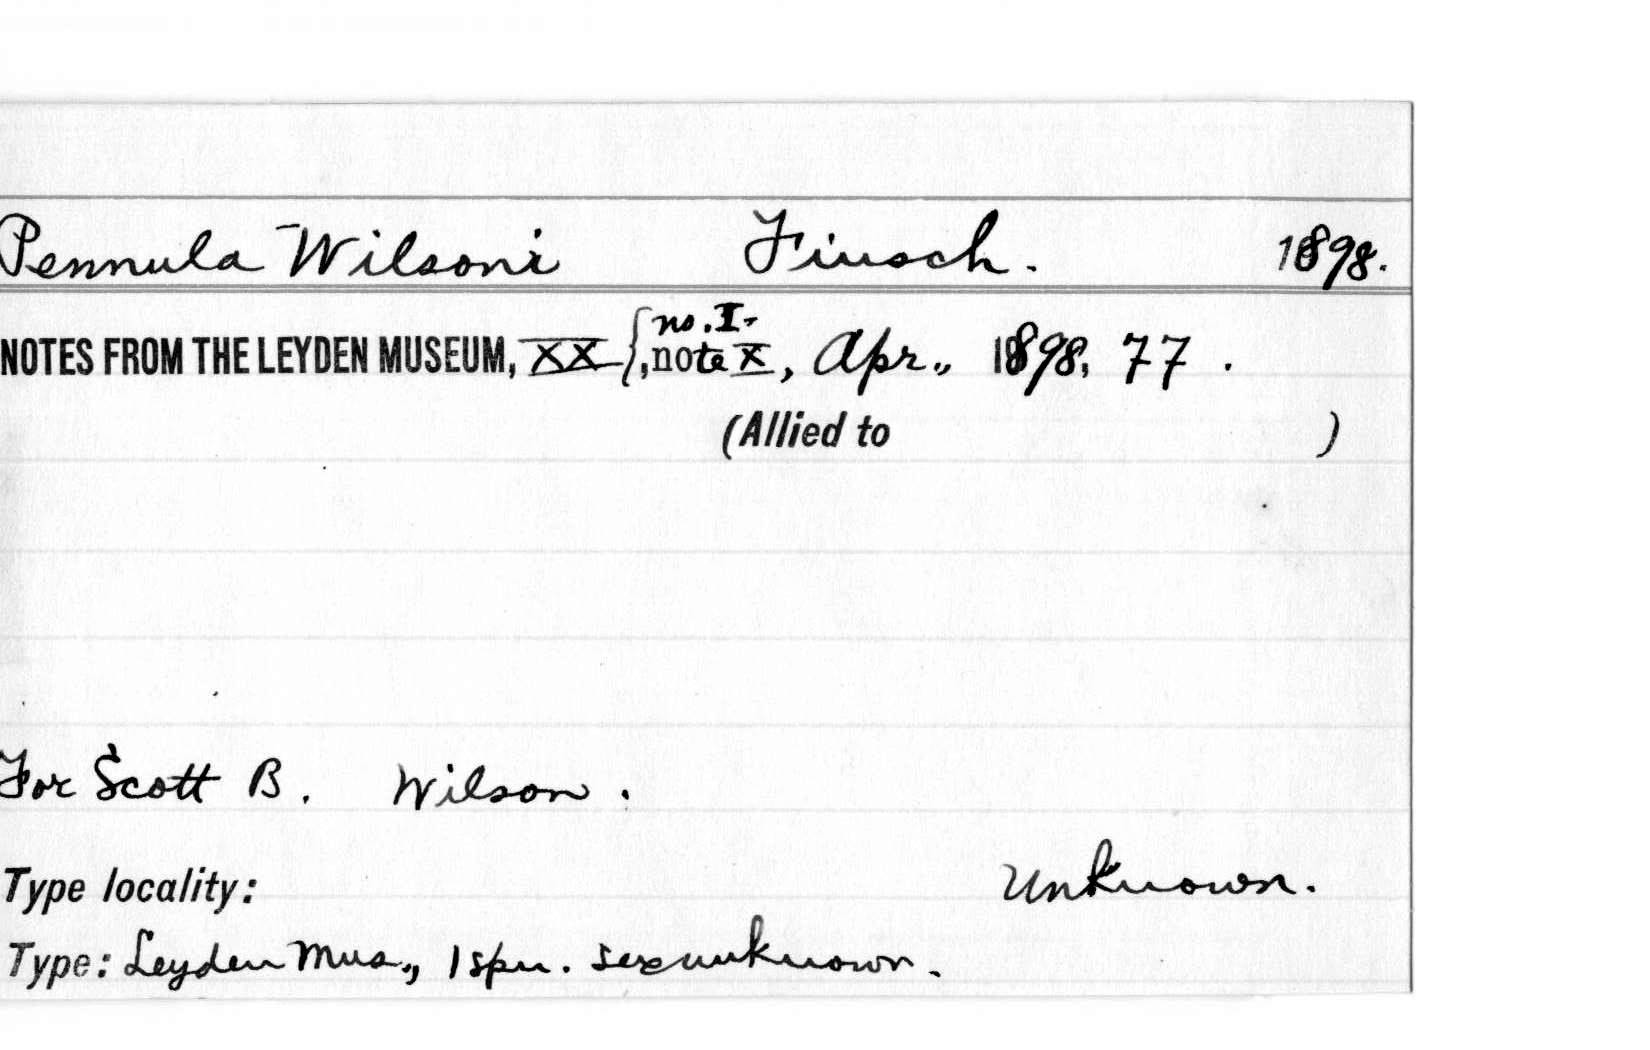 Pennula Wilsoni Finsch. 1898.
no. I-
NOTES FROM THE LEYDEN MUSEUM, XX {, note X, Apr., 1898, 77.
(Allied to )
For Scott B. Wilson.
Type locality: Unknown.
Type: Leyden Mus., 1 spn. sex unknown.